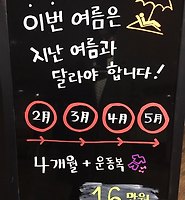 이번 여름은
지난 여름과
달라야 합니다!
2月 3月 4月 5月
4개월 + 운동복
16만원